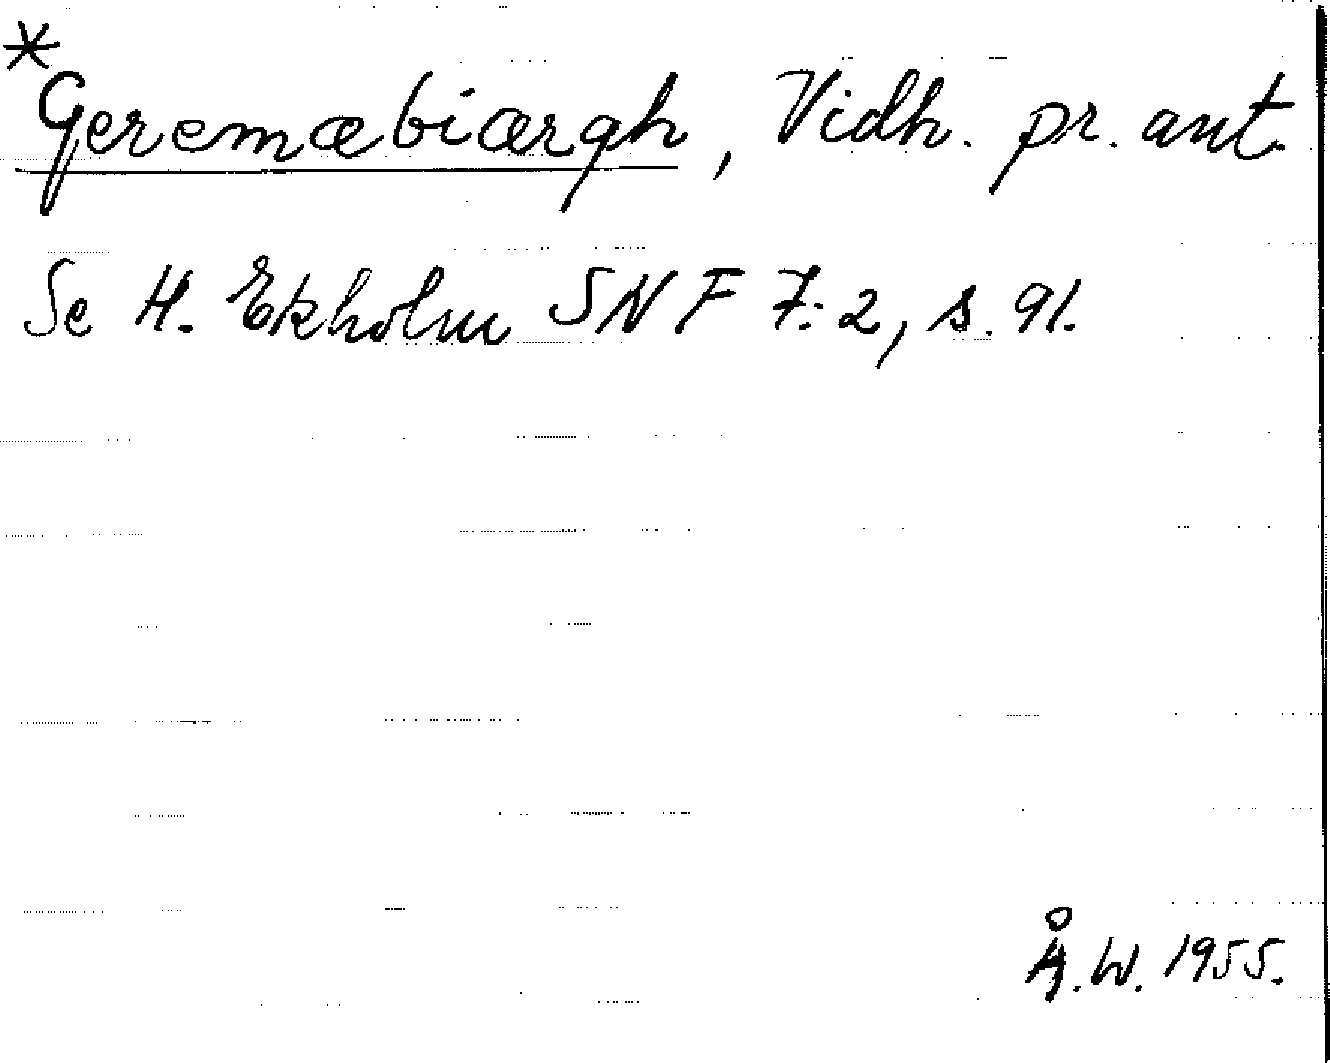 *
Geremæbiærgh, Vidh. pr. ant.
Se H. Ekholm SNF 7:2, s. 91.
Å.W. 1955.